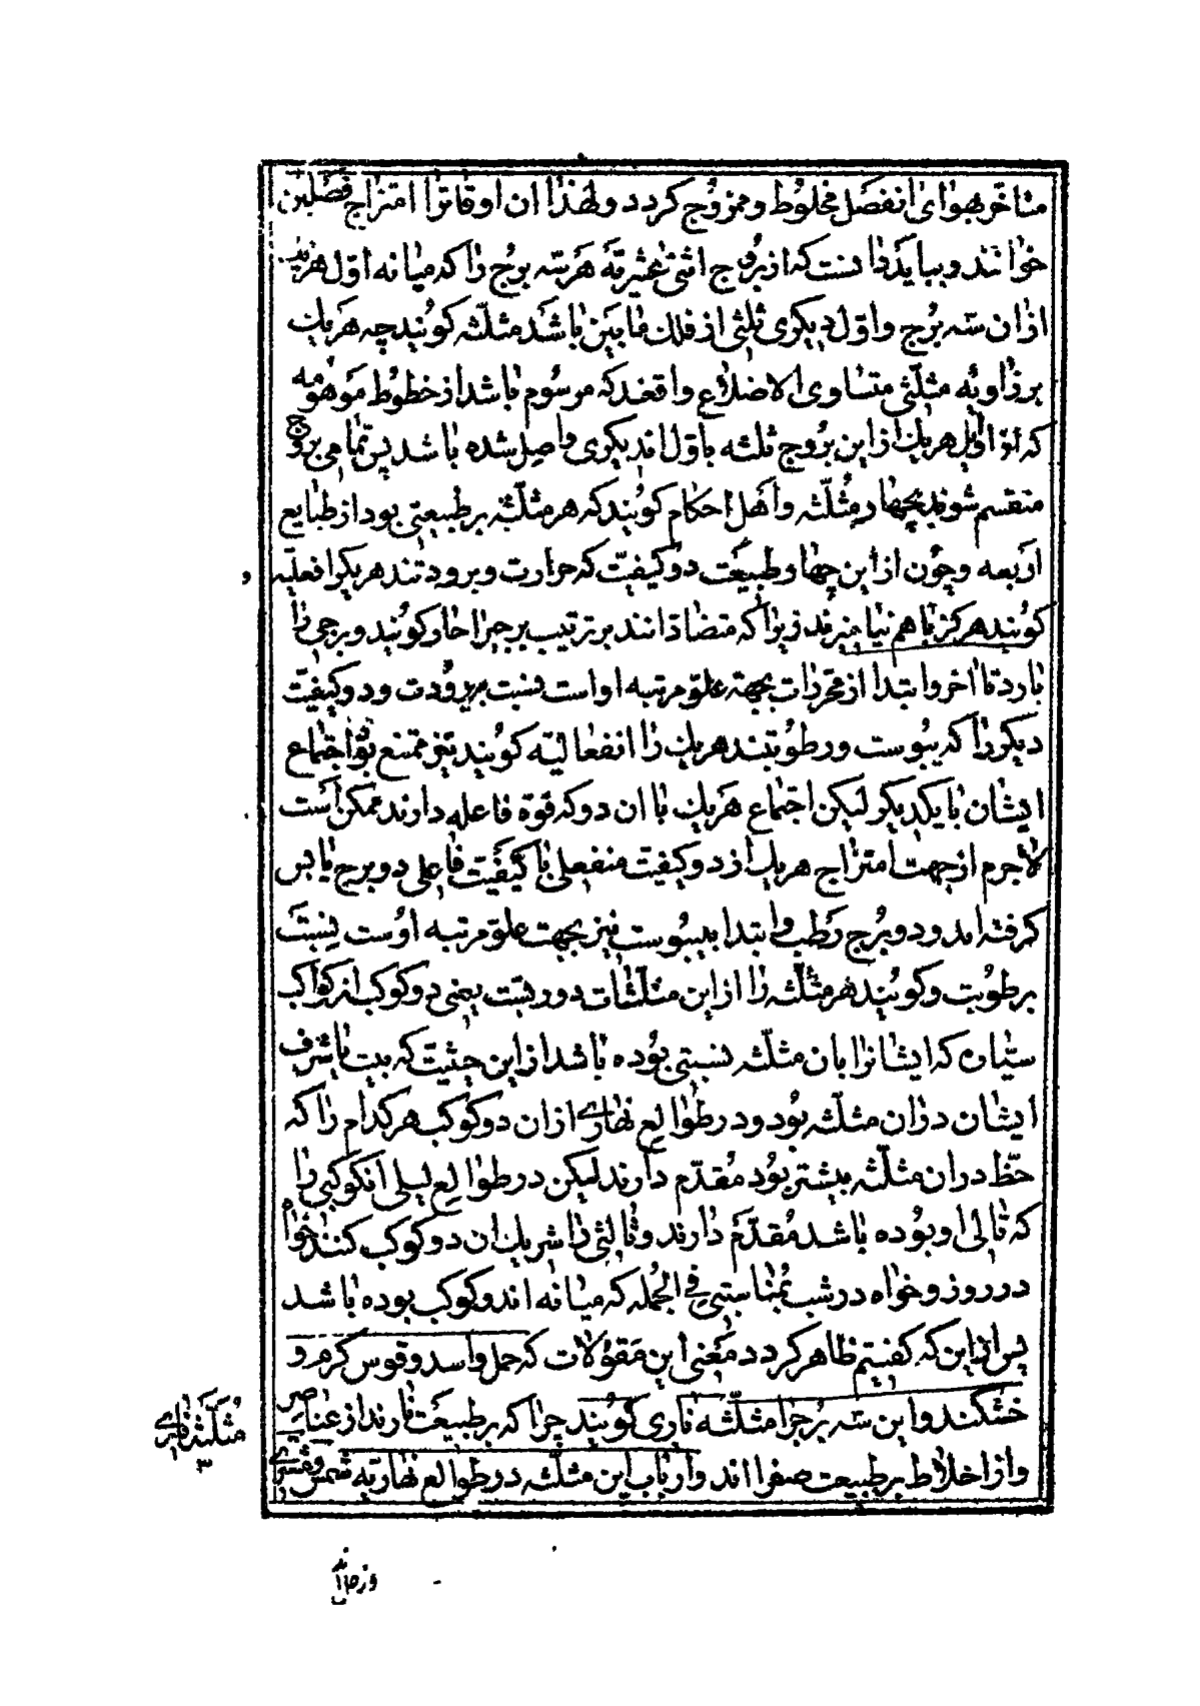 متاخر بهوای انفصل مخلوط و ممزوج کردد و لهذا ان اوقاترا امتزاج فصلین
خوانند و بباید دانست که از بروج اثنی عشریه هر سه برج را که میانه اول هریک
ازان سه برج و اول دیکری ثلثی از فلک مابین باشد مثلثه کویند چه هریک
بر زاویه مثلثی متساوی الاضلاع واقعند که مرسوم باشد از خطوط موهومه
که از اوایل هریک ازاین بروج ثلثه باول اندیکری واصل شده باشد پس تمامی بروج
منقسم شوند بچهار مثلثه و اهل احکام کویند که هر مثلثه بر طبیعتی بود از طبایع
اربعه و چون ازاین چهار طبیعت دو کیفیت که حرارت و برودتند هریکرا فعلیه
کویند هرکز باهم نیامیزند زیرا که متضادانند بر ترتیب برجیرا حار کویند و برجی را
بارد تا اخر و ابتدا از محرات بجهة علو مرتبه او است نسبت ببرودت و دو کیفیت
دیکر را که یبوست و رطوبتند هریک را انفعالیه کویند نیز ممتنع بود اجتماع
ایشان با یکدیکر لیکن اجتماع هریک با ان دو که قوة فاعله دارند ممکن است
لاجرم از جهت امتزاج هریک از دو کیفیت منفعلی با کیفیت فاعلی دو برج یابس
کرفته اند و دو برج رطب و ابتدا بیبوست نیز بجهت علو مرتبه اوست نسبت
برطوبت و کویند هر مثلثه را ازاین مثلثات دو ربست یعنی دو کوکب از کواکب
ستیان که ایشانرا بان مثلثه نسبتی بوده باشد ازاین حیثیت که بیت یا شرف
ایشان دران مثلثه بود و در طوالع نهاری ازان دو کوکب هر کدام را که
حظ دران مثلثه بیشتر بود مقدم دارند لیکن در طوالع لیلی انکوکبی را
که تالی او بوده باشد مقدم دارند و ثالثی را شریک ان دو کوکب کنند خواه
در روز و خواه در شب بمناسبتی فی الجمله که میانه اندو کوکب بوده باشد
پس ازاین که کفتیم ظاهر کردد معنی این مقولات که حمل و اسد و قوس کرم و
خشکند و این سه برجرا مثلثه ناری کویند چرا که بر طبیعت نارند از عناصر
و از اخلاط بر طبیعت صفرا اند و ارباب این مثلثه در طوالع نهاریه شمس و مشتری
مثلثه ناری
۳